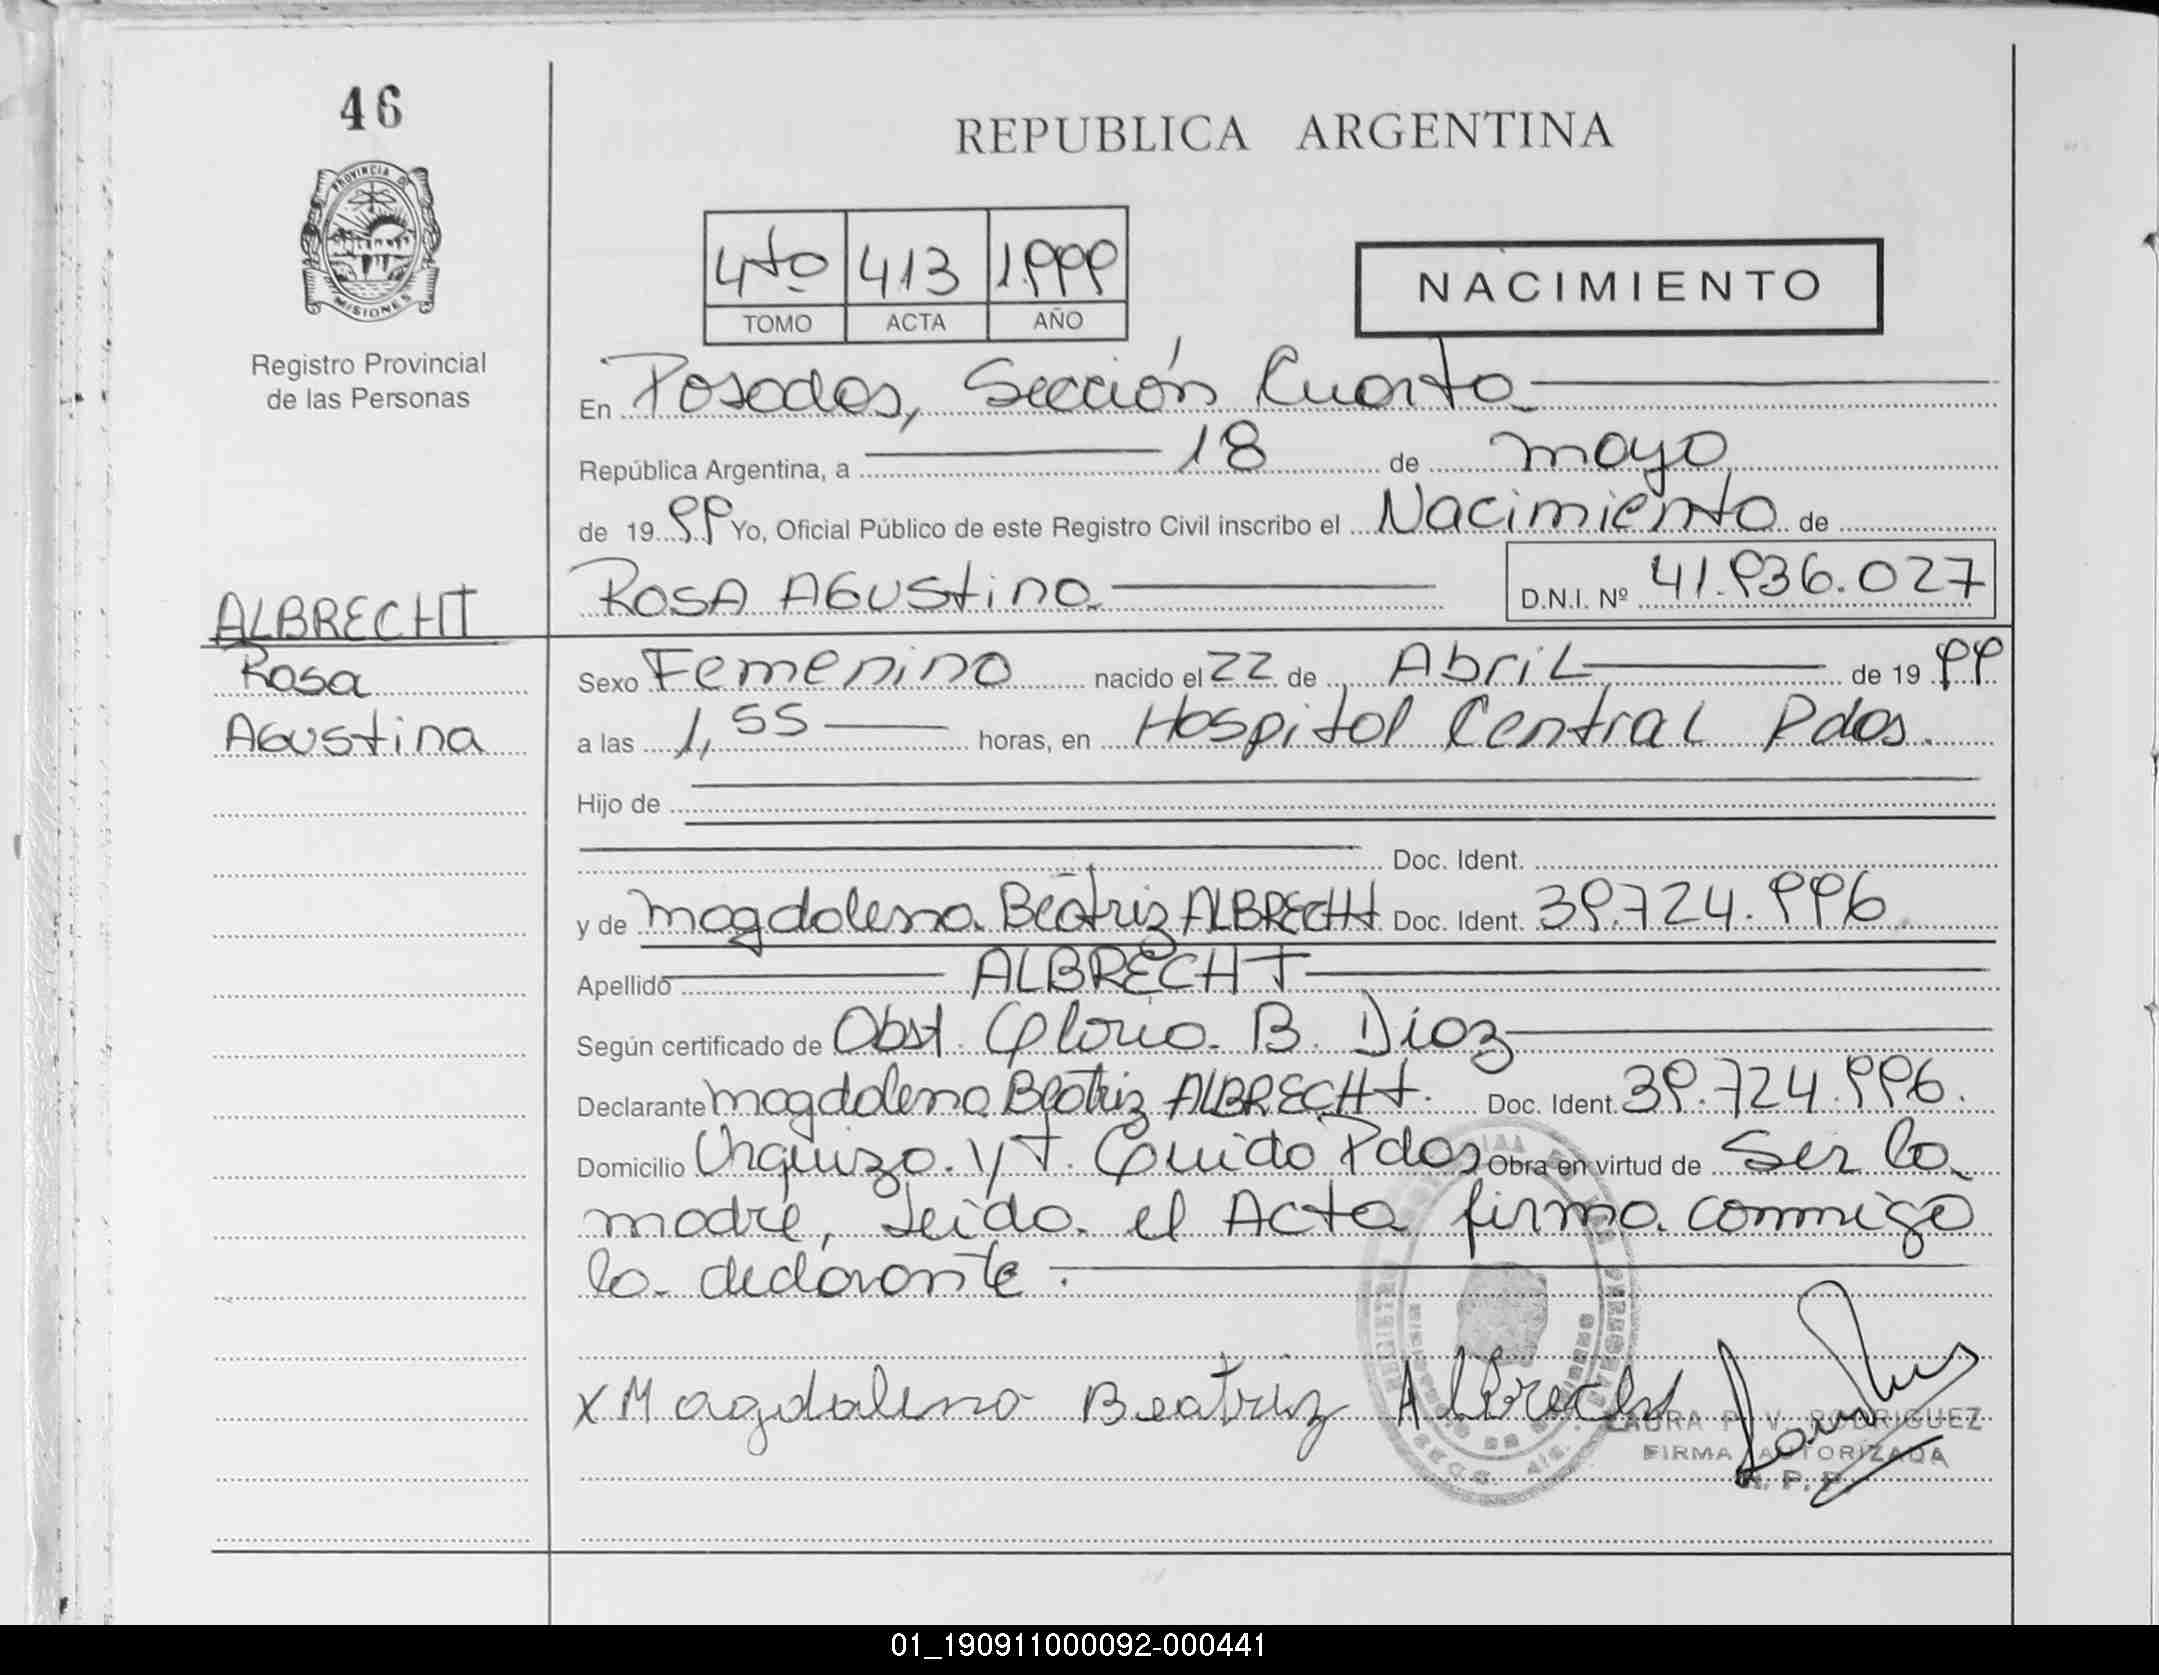 46
PROVINCIA DE
MISIONES
Registro Provincial
de las Personas
REPUBLICA ARGENTINA
4to 413 1.999
TOMO ACTA AÑO
NACIMIENTO
En Posadas, Sección Cuarta
República Argentina, a 18 de mayo
de 1999 Yo, Oficial Público de este Registro Civil inscribo el Nacimiento de
ROSA AGUStina D.N.I. Nº 41.936.027
ALBRECHT
Rosa
AGUStina
Sexo Femenino nacido el 22 de AbriL de 1999
a las 1,55 horas, en Hospital CentraL Pdas.
Hijo de
Doc. Ident.
y de Magdalena Beatriz ALBRECHt Doc. Ident. 39.724.996
Apellido ALBRECHT
Según certificado de Obst. Gloria B. Diaz
Declarante Magdalena Beatriz ALBRECHt. Doc. Ident. 39.724.996.
Domicilio Urquiza y T. Guido Pdas Obra en virtud de Ser la
madre, Leida el Acta firma conmigo
la declarante.
x Magdalena Beatriz Albrecht
LAURA P. V. RODRIGUEZ
FIRMA AUTORIZADA
R. P. P.
01_190911000092-000441